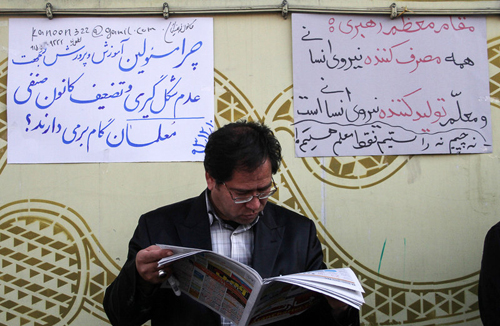 kanoon322@gmail.com
چرا مسئولین آموزش و پرورش در جهت
عدم شکل گیری و تضعیف کانون صنفی
معلمان گام برمی دارند؟
۹۳/۱۲/۱۰
مقام معظم رهبری:
همه مصرف کننده نیروی انسانی
و معلّم تولید کننده نیروی انسانی است
نه چپیم نه راستیم فقط معلم هستیم!